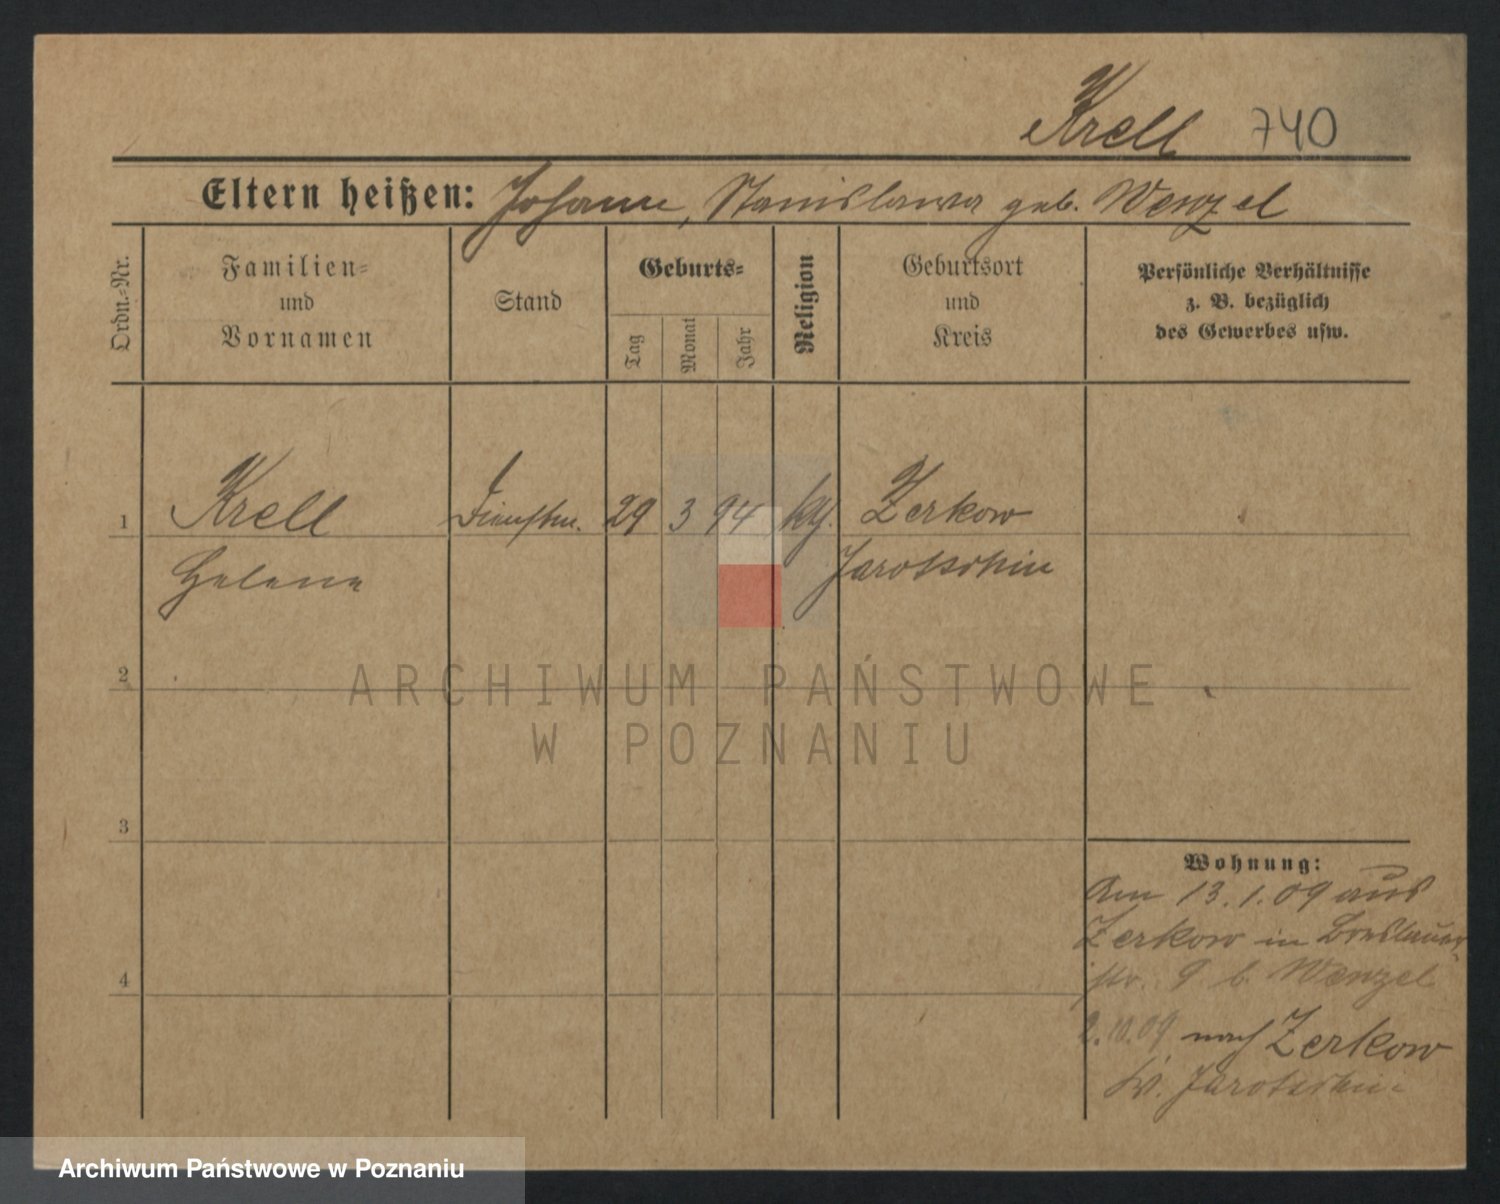 Krell 740
Eltern heißen: Johann, Stanislawa geb. Wenzel
Ordn.-Nr.
Familien-
und
Vornamen
Stand
Geburts-
Tag
Monat
Jahr
Religion
Geburtsort
und
Kreis
Persönliche Verhältnisse
z. B. bezüglich
des Gewerbes usw.
1 Krell 29 3 94 Zerkow
Helene Jarotschin
2
3
4
Wohnung:
Am 13.1.09 aus
Zerkow in Breslauer-
str. 9 b. Wenzel
2.10.09 nach Zerkow
Kr. Jarotschin
ARCHIWUM PAŃSTWOWE
W POZNANIU
Archiwum Państwowe w Poznaniu